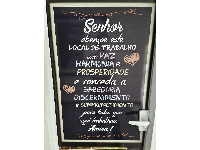 Senhor
abençoe este
LOCAL DE TRABALHO
com PAZ
HARMONIA e
PROSPERIDADE
e conceda a
SABEDORIA
DISCERNIMENTO
e COMPROMETIMENTO
para todos que
aqui trabalham
Amém!